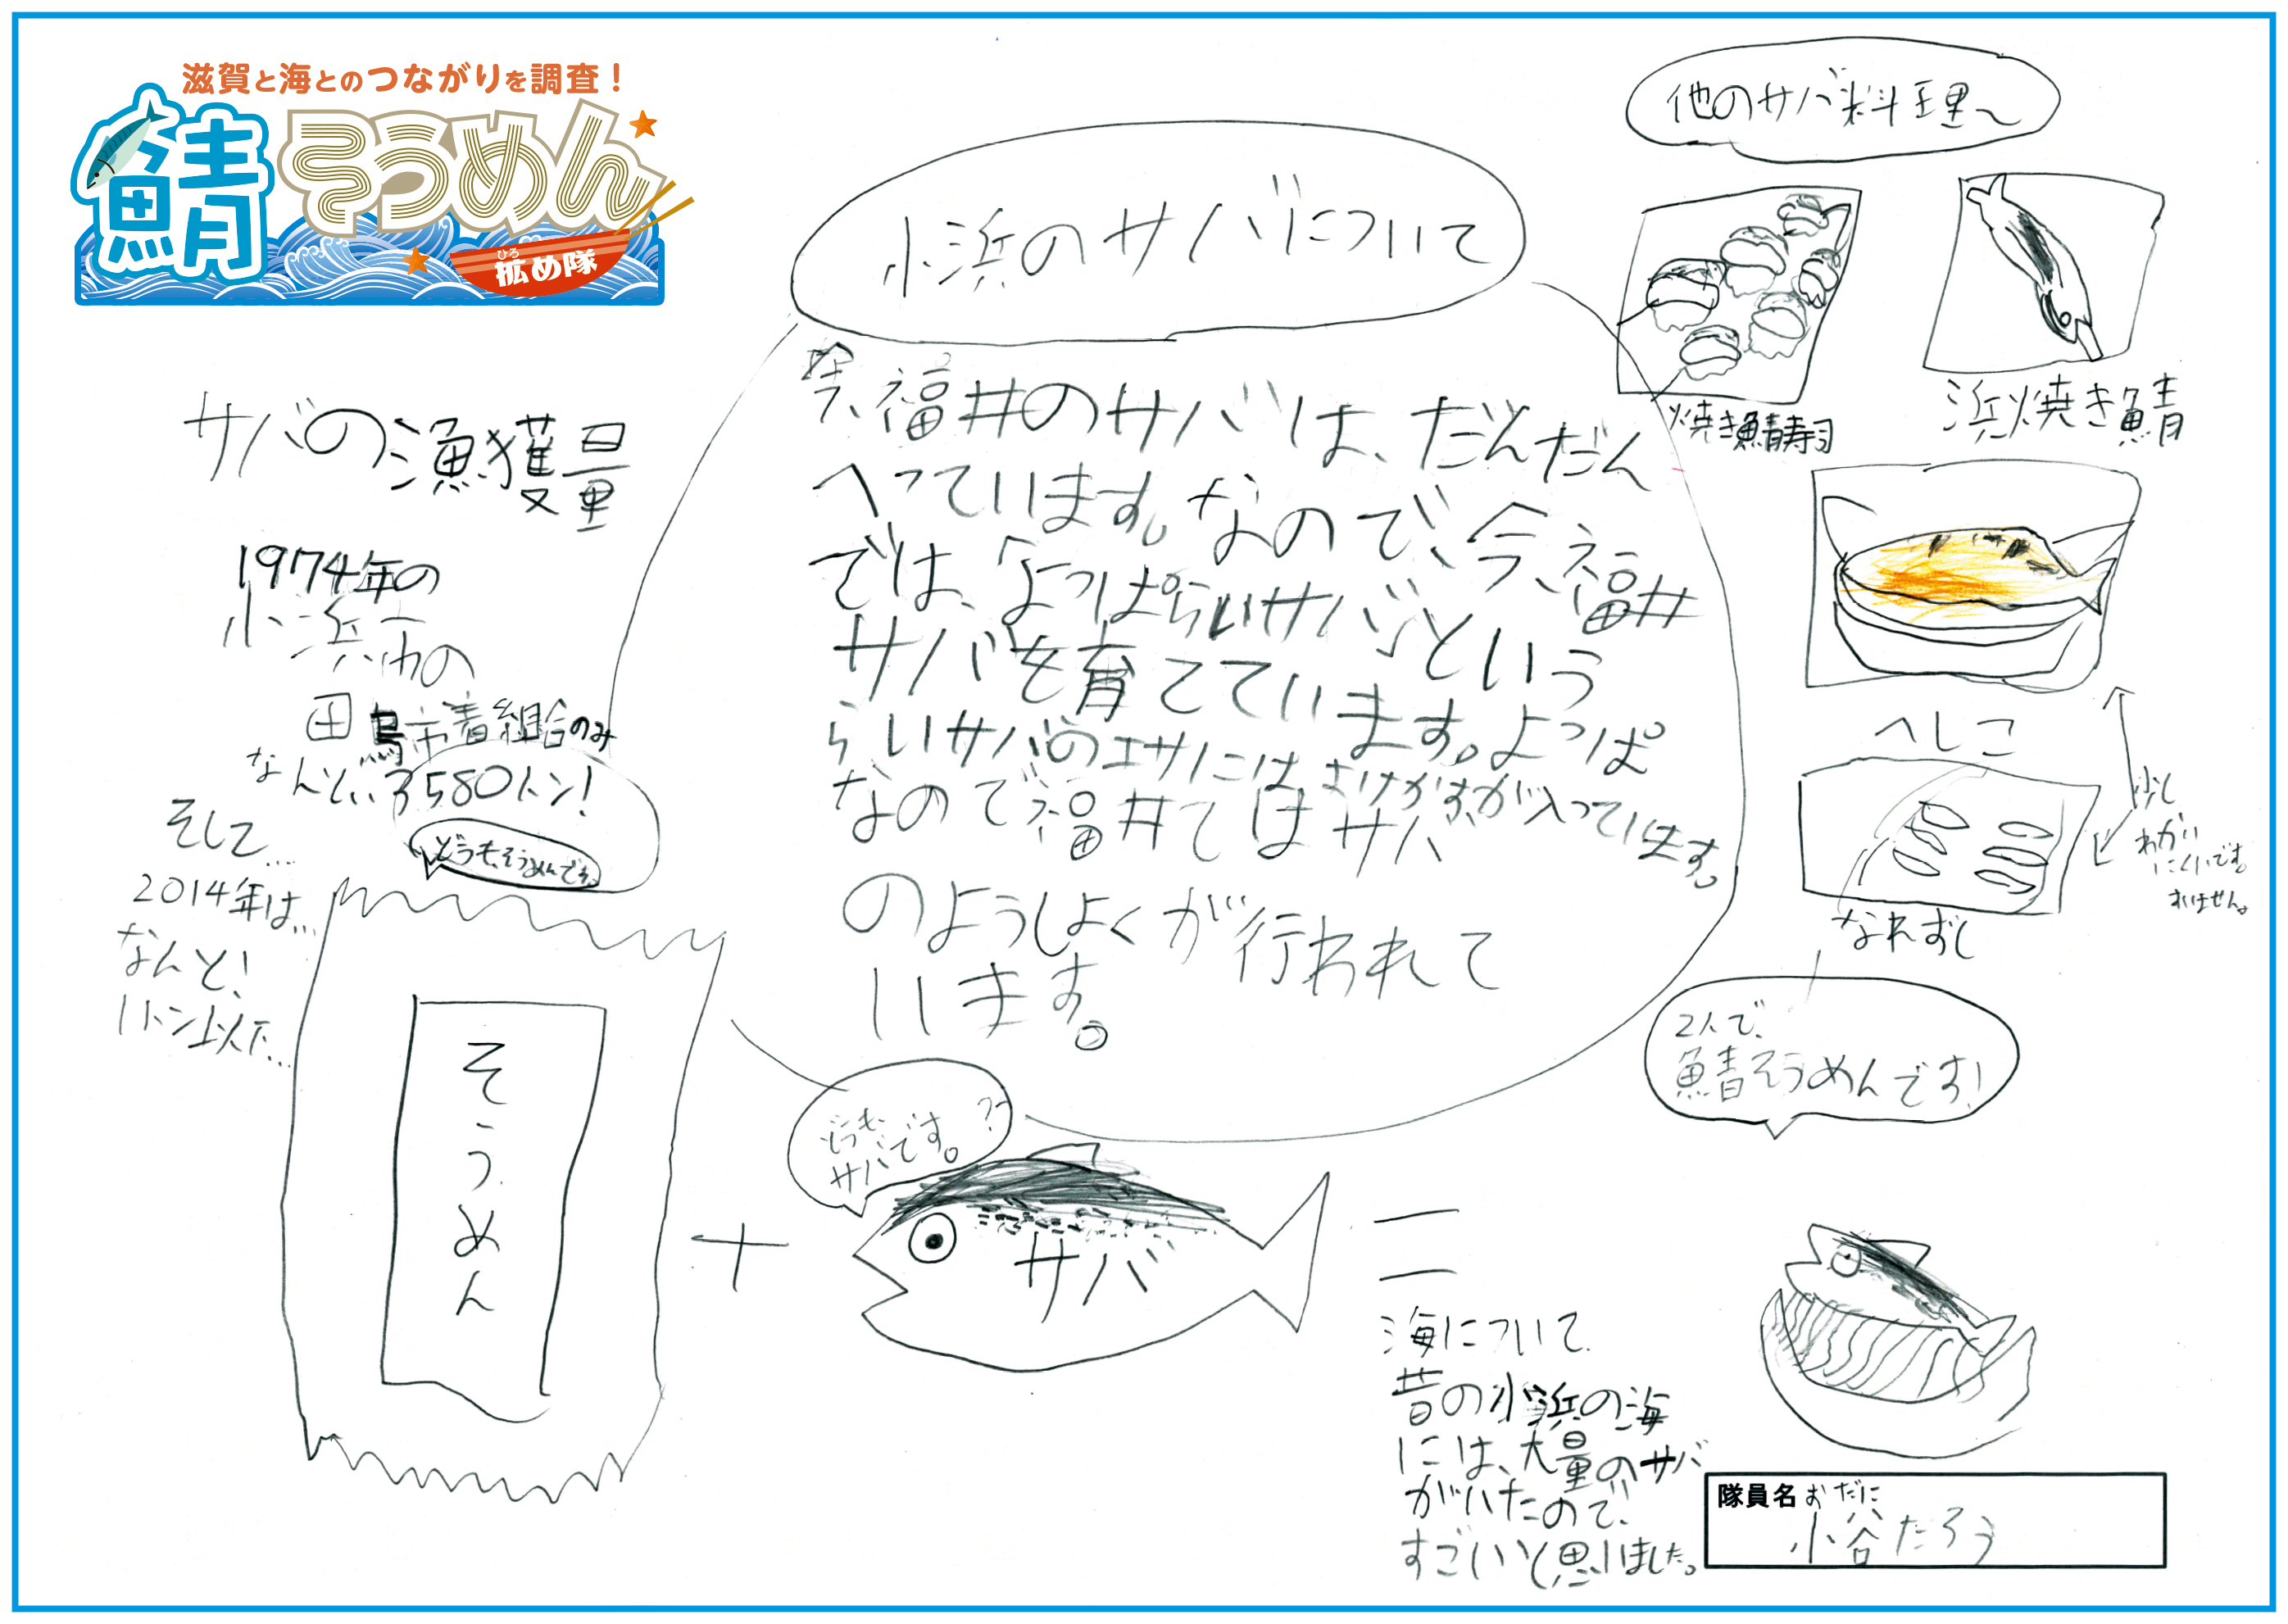 滋賀と海とのつながりを調査！
鯖そうめん
ひろ
拡め隊
小浜のサバについて
今、福井のサバは、だんだん
へっています。なので、今、福井
では、「よっぱらいサバ」という
サバを育てています。よっぱ
らいサバのエサにはさけかすが入っています。
なので福井てはサバ
のようしょくが行われて
います。
サバの漁獲量
1974年の
小浜市の
田烏巾着組合のみ
なんと…3580トン！
そして…
2014年は…
なんと！
1トン以下…
どうも、そうめんです。
そうめん
+
どうも、
サバです。
サバ
=
他のサバ料理〜
焼き鯖寿司
浜焼き鯖
へしこ
なれずし
少し
わかり
にくいです。
すいません。
2人で、
鯖そうめんです！
海について
昔の小浜の海
には、大量のサバ
がいたので、
すごいいと思いました。
隊員名
おだに
小谷たろう